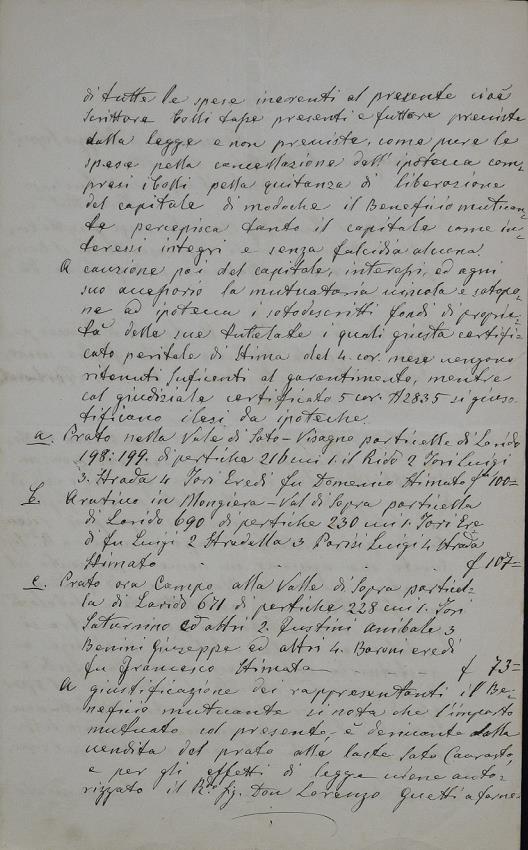 di tutte le spese inerenti al presente cioè
scrittura bolli tape presenti e future previste
dalla legge e non previste, come pure le
spese pella cancellazione dall' ipoteca com-
presi i bolli pella quitanza di liberazione
del capitale di modoche il Beneficio mutuan-
te percepisca tanto il capitale come in-
teressi integri e senza falcidia alcuna.
A cauzione poi del capitale, interessi, ed ogni
suo accessorio la mutuataria vincola e sotopo-
ne ad ipoteca i sotodescritti fondi di proprie-
tà delle sue tutelate i quali giusta certifi-
cato peritale di stima del 4. cor. mese vengono
ritenuti suficenti al garantimento, mentre
col giudiziale certificato 5 cor. N 2835 si giusti-
tificano ilesi da ipoteche.
a. Prato nella Vale di Soto-Visagno particelle di Larido
198: 199. di pertiche 216 cui 1. il Rido 2 Tori Luigi
3. Strada 4 Tori Eredi fu Domenico Stimato f 100=
b. Arativo in Mongiera-Val di Sopra particella
di Larido 690 di pertiche 230 cui 1. Tori Ere
di fu Luigi 2 Stradella 3 Parisi Luigi 4 Strada
Stimato f 107=
c. Prato ora Campo alla Valle di Sopra particel-
la di Larido 671 di pertiche 228 cui 1. Tori
Saturnino ed altri 2. Fustini Anibale 3
Benini Giuseppe ed altri 4. Baroni eredi
fu Francesco Stimata f 73=
A giustificazione dei rappresentanti il Be-
neficio mutuante si nota che l'importo
mutuato col presente, è derivante dalla
vendita del prato alle laste Soto
e per gli effetti di legge viene auto-
rizzato il R.do Sig. Don Lorenzo Guetti a farne